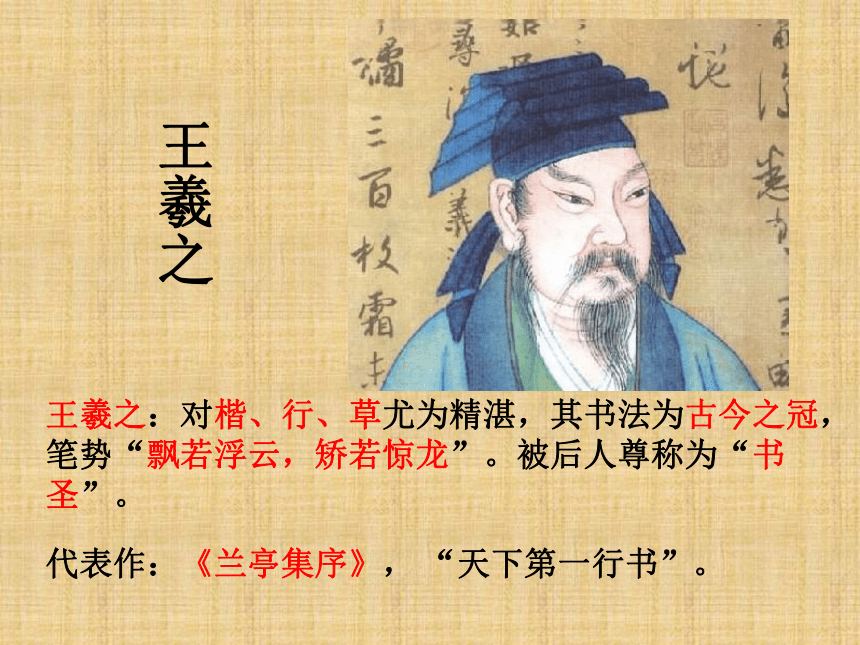 王羲之
王羲之：对楷、行、草尤为精湛，其书法为古今之冠，
笔势“飘若浮云，矫若惊龙”。被后人尊称为“书
圣”。
代表作：《兰亭集序》，“天下第一行书”。
三百枚霜未